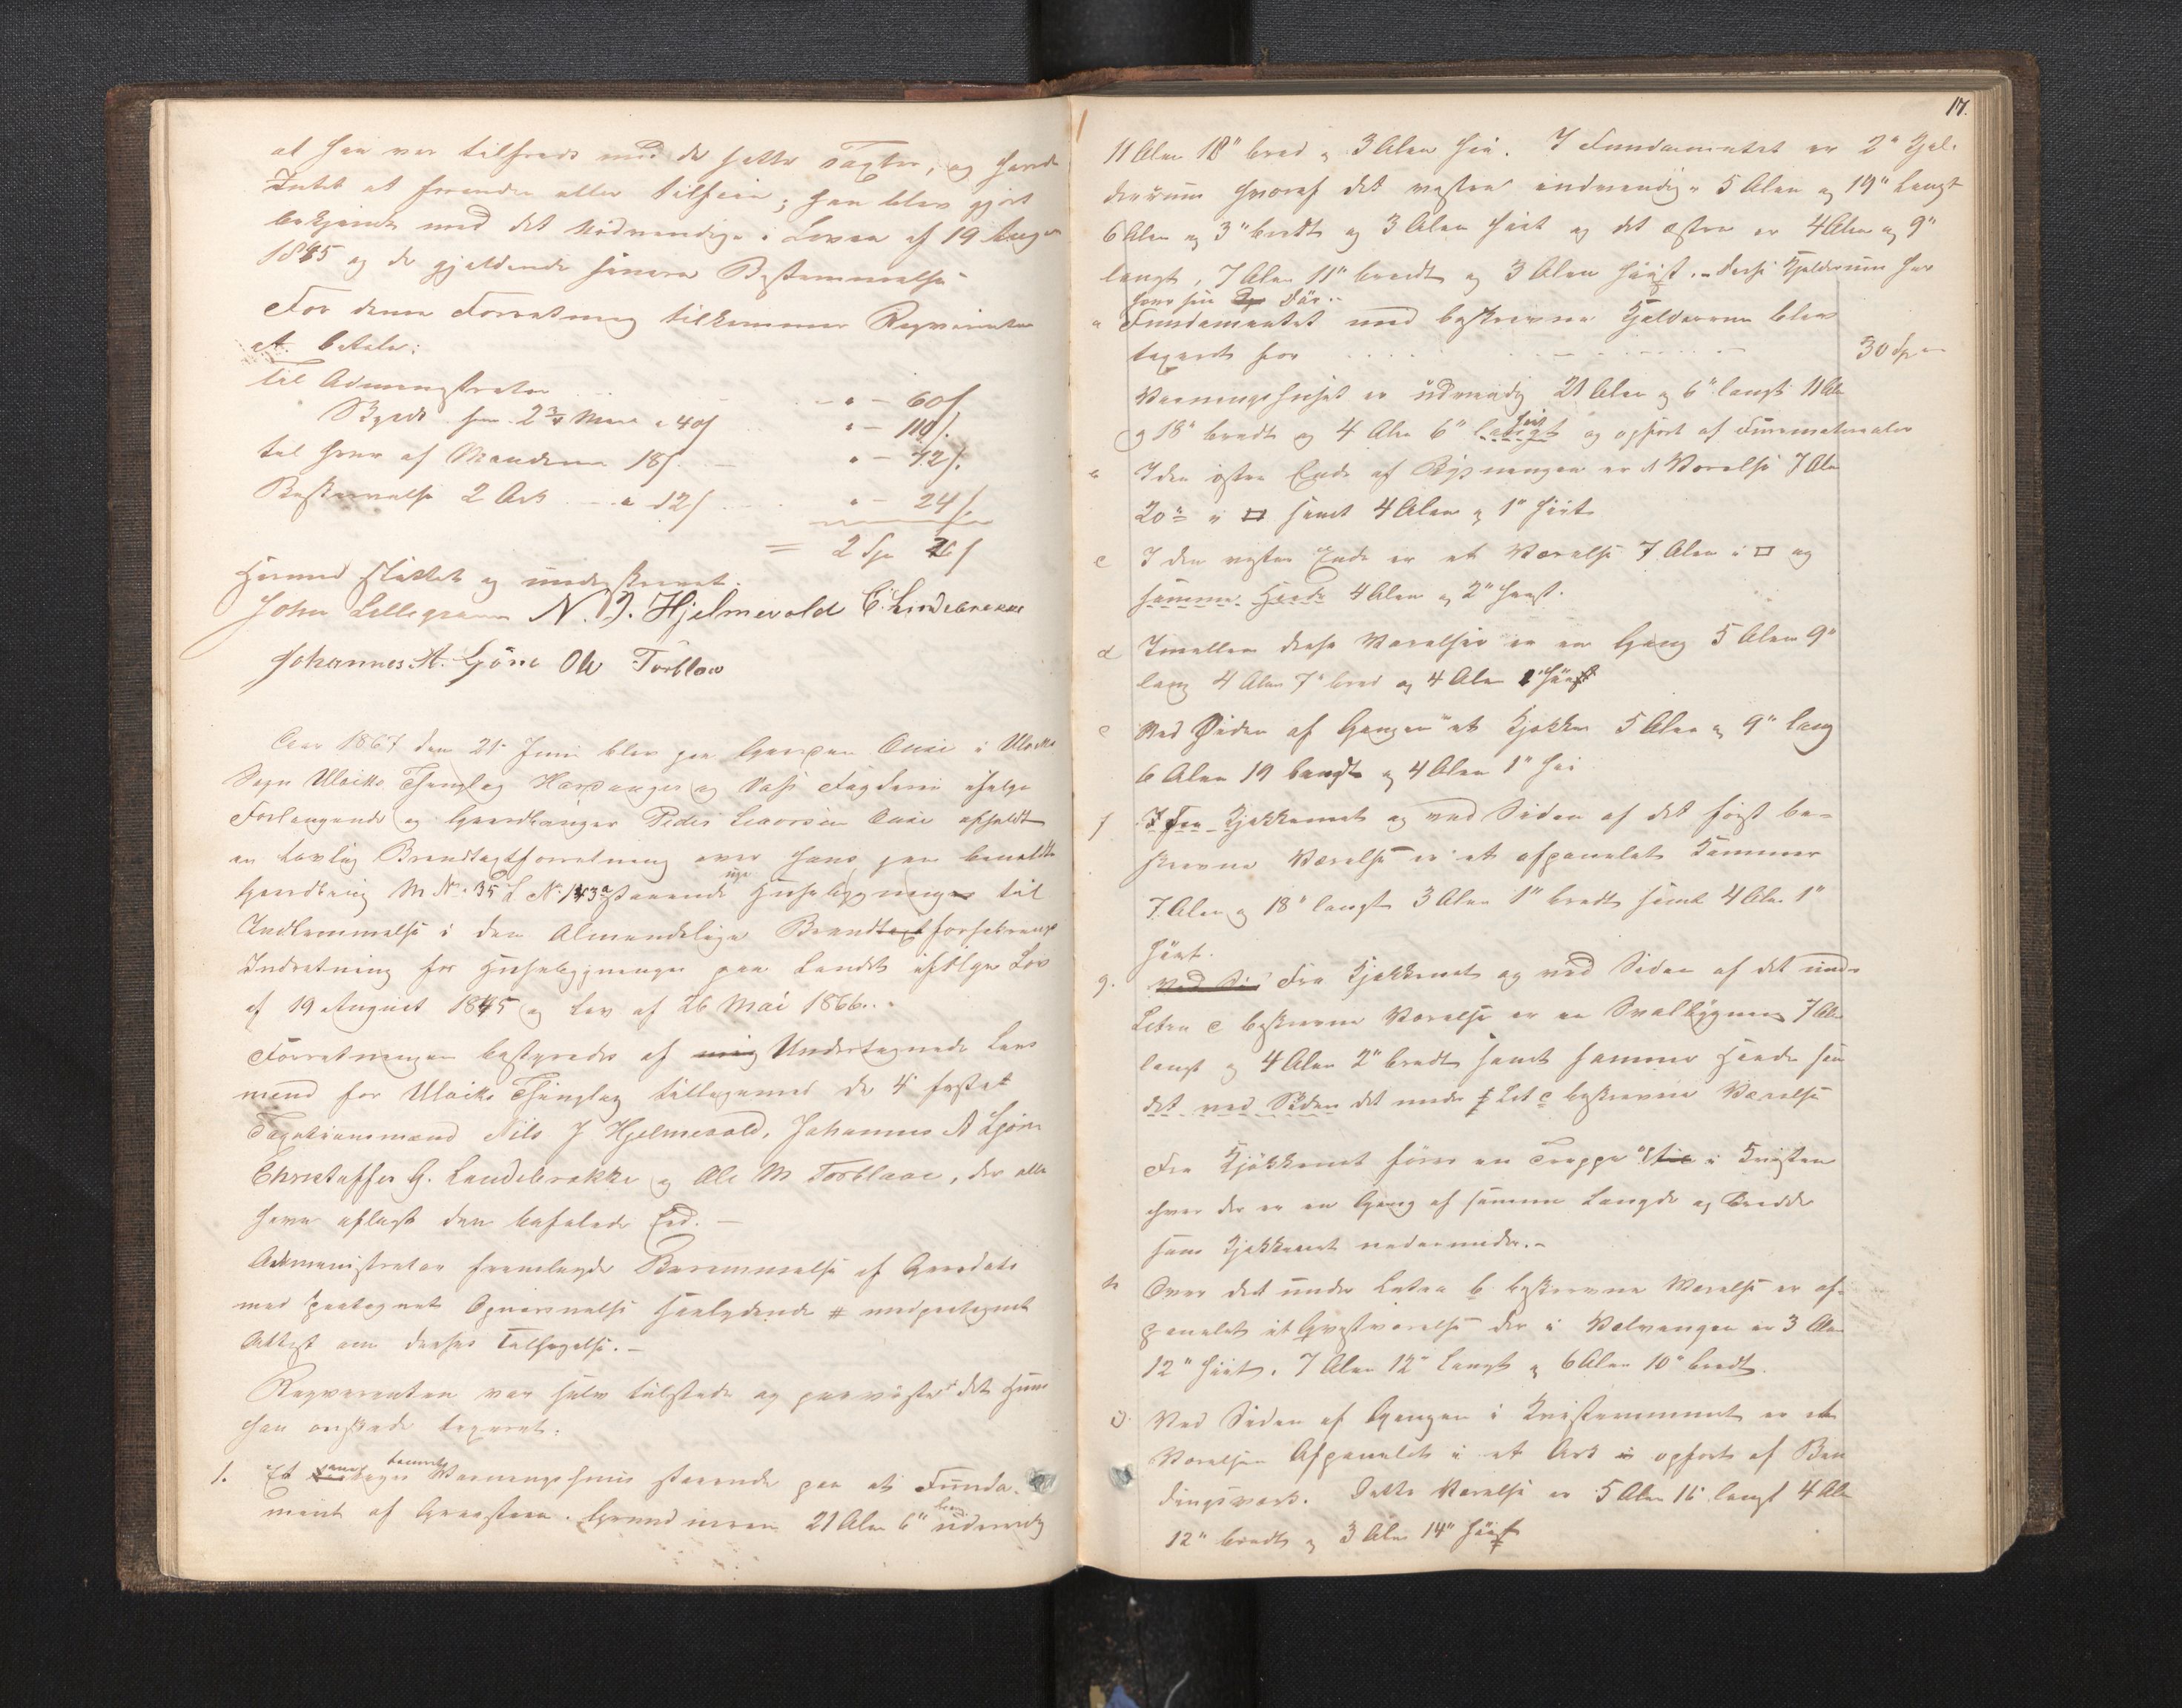 at han var tilfreds med de satte Taxter, og havde
Intet at forandre eller tilføie; han blev gjort
bekjendt med det Nødvendige i Loven af 19 August
1845 og de gjældende senere Bestemmelser
For denne Forretning tilkommer Rekvirenten
at betale:
Til Administrator " - 60 s
Skyds for 2 3/4 Mil a 40 s " - 110 s.
til hver af Mændene 18 s. " - 72 s.
Beskrivelse 2 Ark a 12 s " - 24 s.
= 2 Spd 26 s
Hermed sluttet og underskrevet.
John Lillegraven N. J. Hjelmevold C. Lindebrekke
Johannes A. Ljöne Ole Torblaa
Aar 1867 den 21 Juni blev paa Gaarden Ouse i Ulvik
Sogn Ulviks Thinglag Hardanger og Voss Fogderi efter
Forlangende af Gaardbruger Peder Larssen Ouse afholdt
en lovlig Brandtaxtforretning over hans paa benævnte
Gaardbrug M No 35 L No 143a staaende nye Huusbygninger til
Indlemmelse i den Almindelige Brandtaxtforsikrings
Indretning for Huusbygninger paa Landet ifølge Lov
af 19 August 1845 og Lov af 26 Mai 1866.
Forretningen bestyredes af mig Undertegnede Lens
mand for Ulviks Thinglag tilligemed de 4 faste
Taxationsmænd Nils J Hjelmevold, Johannes A Ljöne
Christoffer G. Lindebrække og Ole M Torblaae, der alle
have aflagt den befalede Ed. -
Administrator fremlagde Berammelse af Gaarsdato
med paategnet Opnævnelse saalydende # med paategnet
Attest om deres Tilsigelse. -
Rekvirenten var selv tilstede og paaviste det Huus
han ønskede taxeret.
1. Et Vaaningshuus staaende paa et Funda-
ment af Graasteen. Grundmuren 21 Alen 6" lang udvendig
17.
11 Alen 18" bred og 3 Alen høi. I Fundamentet er 2de Kjel-
derrum hvoraf det vestre indvendig er 5 Alen og 19" langt
6 Alen og 3" bredt og 3 Alen høit og det østre er 4 Alen og 9"
langt, 7 Alen 11" bredt og 3 Alen høit. - Disse Kjelderrum har
hver sin Dør. -
a Fundamentet med beskrevne Kjelderrum blev
taxeret for 30 Spd
Vaaningshuset er udvendig 21 Alen og 6" langt 11 Alen
og 18" bredt og 4 Alen 6" langt høit og opført af Furumaterialer
I den østre Ende af Bygningen er 1 Værelse 7 Alen
20" i □ samt 4 Alen og 1" høit
c I den vestre Ende er et Værelse 7 Alen i □ og
samme Høide 4 Alen og 2" høit.
d Imellem disse Værelser er en Gang 5 Alen 9"
lang 4 Alen 7" bred og 4 Alen 1" høi
e Ved Siden af Gangen et Kjøkken 5 Alen og 9" lang
6 Alen 19 bredt og 4 Alen 1" høi
f I Fra Kjøkkenet og ved Siden af det først be-
skrevne Værelse er et afpanelet Kammer
7 Alen og 18" langt 3 Alen 1" bredt samt 4 Alen 1"
høit.
g. Ved Si Fra Kjøkkenet og ved Siden af det under
Litra c beskrevne Værelse er en Svalbygning 7 Alen
langt og 4 Alen 2" bredt samt samme Høide som
det ved Siden det under Lit c beskrevne Værelse
Fra Kjøkkenet fører en Trappe i Kvisten
hvor der er en Gang af samme Længde og Bredde
som Kjøkkenet nedenunder. -
h Over det under Litra b beskrevne Værelse er af-
panelet et Qvistværelse der i Hvelvingen er 3 Alen
12" høit, 7 Alen 12" langt og 6 Alen 10" bredt.
Ved Siden af Gangen i Kvistrummet er et
Værelse Afpanelet i et Ark opført af Bin
dingsværk. Dette Værelse er 5 Alen 16" langt 4 Alen
12" bredt og 3 Alen 14" høit